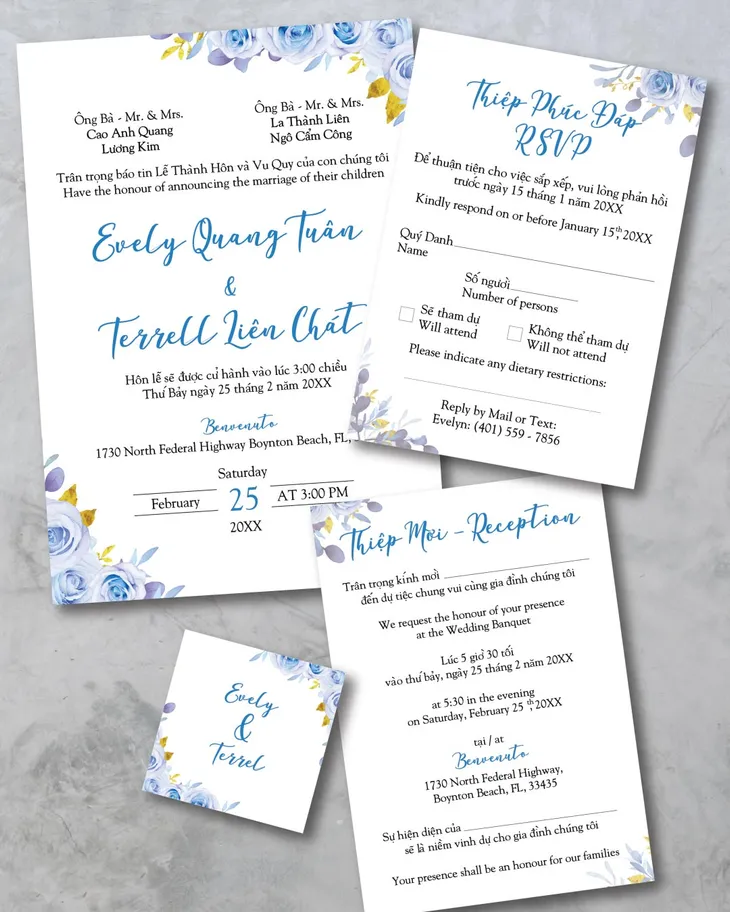 Ông Bà - Mr. & Mrs.
Cao Anh Quang
Lương Kim
Ông Bà - Mr. & Mrs.
La Thành Liên
Ngô Cẩm Công
Trân trọng báo tin Lễ Thành Hôn và Vu Quy của con chúng tôi
Have the honour of announcing the marriage of their children
Evely Quang Tuân
&
Terrell Liên Chát
Hôn lễ sẽ được cử hành vào lúc 3:00 chiều
Thứ Bảy ngày 25 tháng 2 năm 20XX
Benvenuto
1730 North Federal Highway Boynton Beach, FL,
Saturday
February 25 AT 3:00 PM
20XX
Thiệp Phúc Đáp
RSVP
Để thuận tiện cho việc sắp xếp, vui lòng phản hồi
trước ngày 15 tháng 1 năm 20XX
Kindly respond on or before January 15th, 20XX
Quý Danh
Name
Số người
Number of persons
Sẽ tham dự
Will attend
Không thể tham dự
Will not attend
Please indicate any dietary restrictions:
Reply by Mail or Text:
Evelyn: (401) 559 - 7856
Thiệp Mời - Reception
Trân trọng kính mời
đến dự tiệc chung vui cùng gia đình chúng tôi
We request the honour of your presence
at the Wedding Banquet
Lúc 5 giờ 30 tối
vào thứ bảy, ngày 25 tháng 2 năm 20XX
at 5:30 in the evening
on Saturday, February 25th, 20XX
tại / at
Benvenuto
1730 North Federal Highway,
Boynton Beach, FL, 33435
Sự hiện diện của
sẽ là niềm vinh dự cho gia đình chúng tôi
Your presence shall be an honour for our families
Evely
&
Terrel